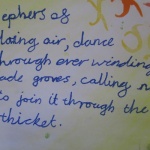 ephers of
losing air, dance
hrough ever winding
ade groves, calling
to join it through the
thicket.